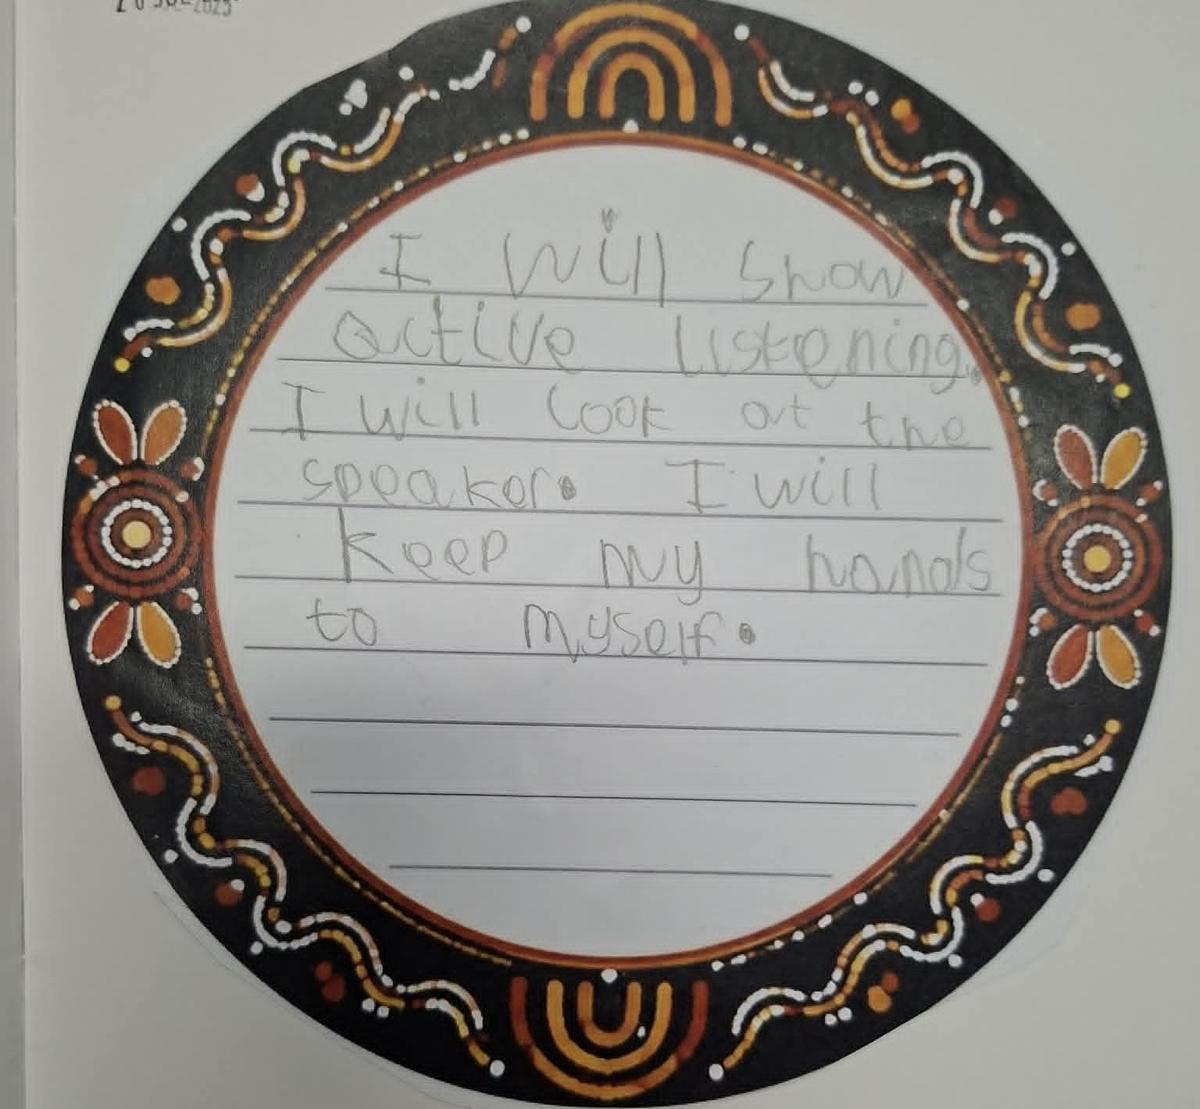 I will show
active listening.
I will look at the
speaker. I will
keep my hands
to myself.